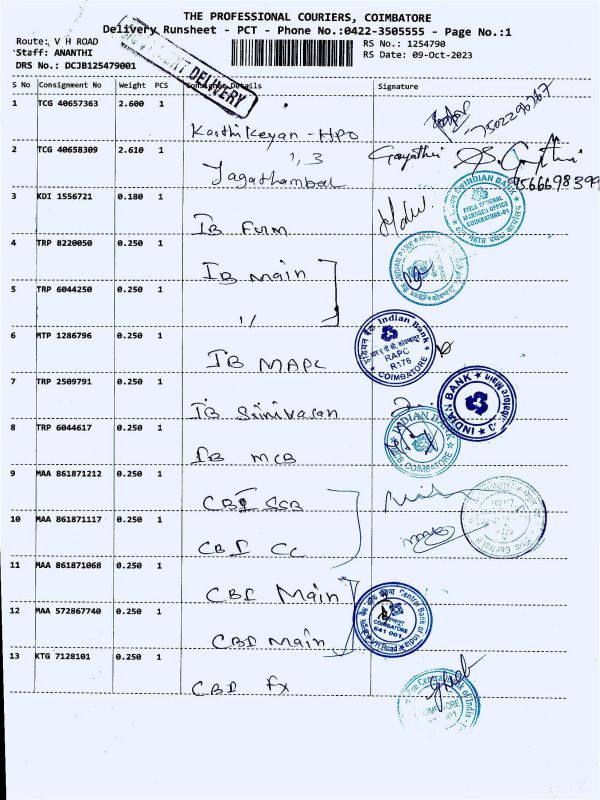 THE PROFESSIONAL COURIERS, COIMBATORE
Delivery Runsheet - PCT - Phone No.:0422-3505555 - Page No.:1
Route: V H ROAD
Staff: ANANTHI
DRS No.: DCJB125479001
RS No.: 1254790
RS Date: 09-Oct-2023
DELIVERY
S No Consignment No Weight PCS Consignee Details Signature
1 TCG 40657363 2.600 1 Karthikeyan - HPO 7502296767
2 TCG 40658309 2.610 1 Jagathambal 1, 3 Gayathri
3 KDI 1556721 0.180 1 IB Furm
INDIAN BANK
FIELD GENERAL
MANAGER OFFICE
COIMBATORE-01
4 TRP 8220050 0.250 1 IB Main
5 TRP 6044250 0.250 1 1/
6 MTP 1286796 0.250 1 IB MAPC
Indian Bank
RAPC
R176
COIMBATORE
7 TRP 2509791 0.250 1 IB Srinivasan
INDIAN BANK
8 TRP 6044617 0.250 1 IB MCB
INDIAN BANK
COIMBATORE
9 MAA 861871212 0.250 1 CBI SSB
10 MAA 861871117 0.250 1 CBI CC
11 MAA 861871068 0.250 1 CBI Main
12 MAA 572867740 0.250 1 CBI Main
Central Bank of India
COIMBATORE
641 001
13 KTG 7128101 0.250 1 CBI Fx